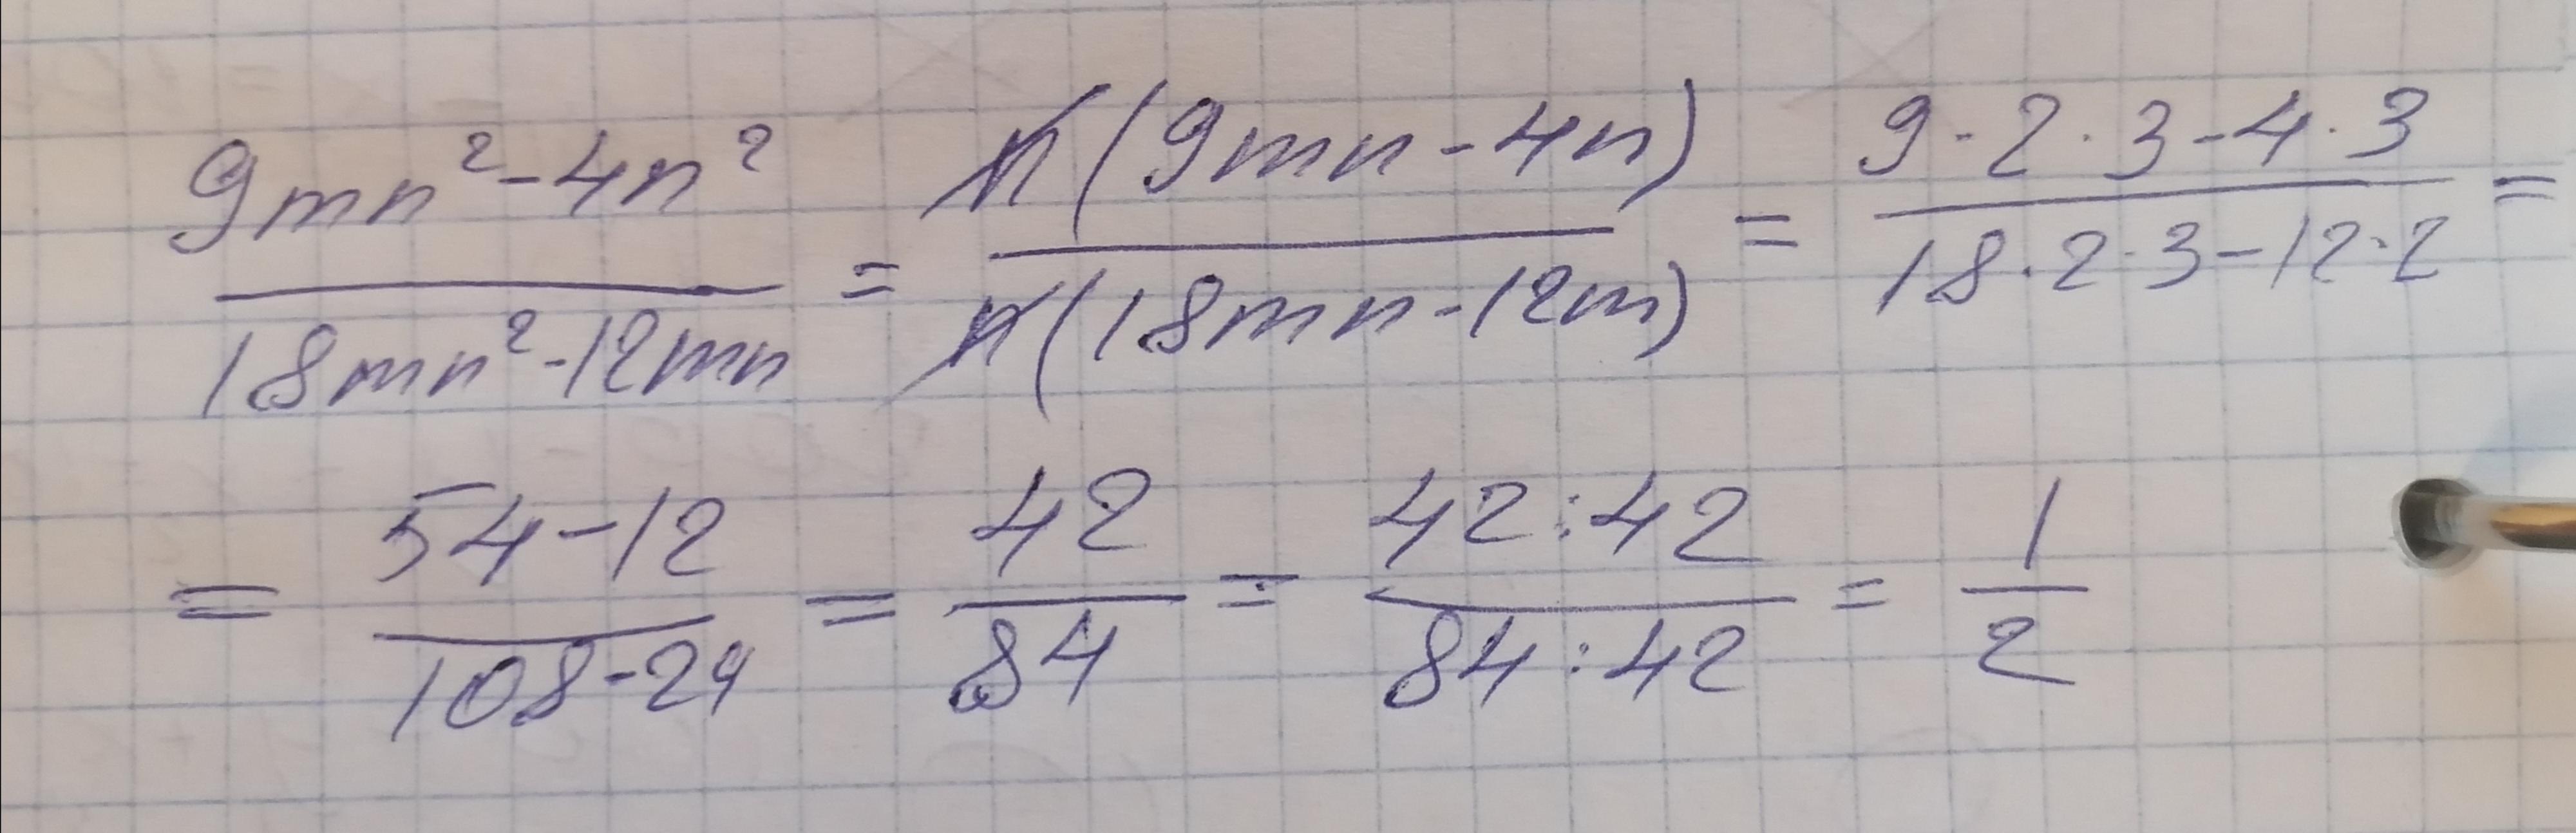 (9mn² - 4n²)/(18mn² - 12mn) = n(9mn - 4n)/n(18mn - 12m) = (9 · 2 · 3 - 4 · 3)/(18 · 2 · 3 - 12 · 2) =
= (54 - 12)/(108 - 24) = 42/84 = (42 : 42)/(84 : 42) = 1/2